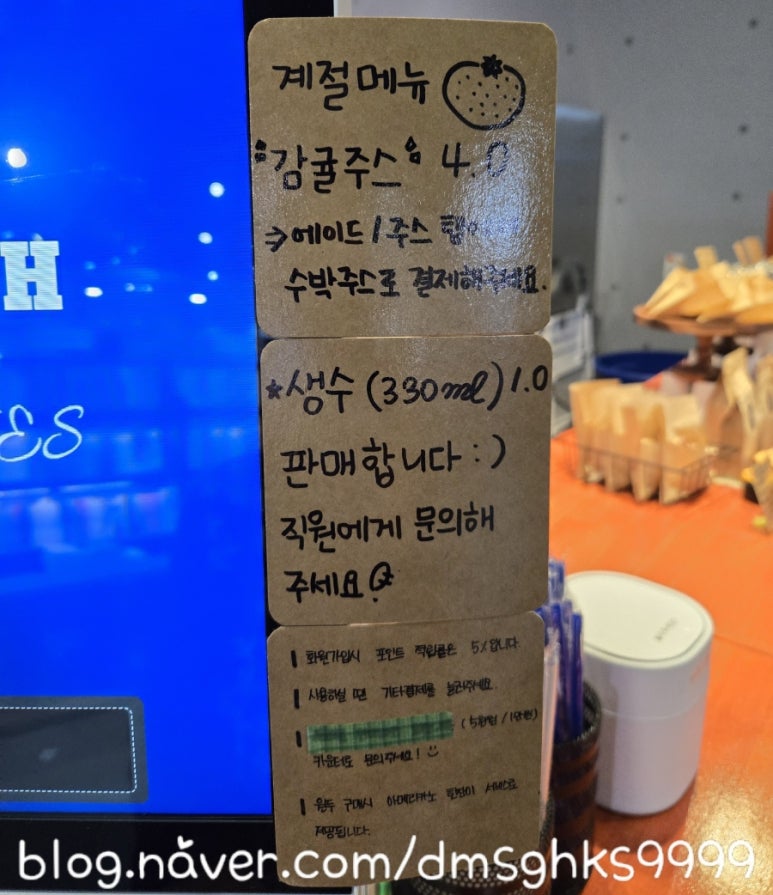 H
ES
계절메뉴
*감귤주스* 4.0
→에이드/주스 탭에
수박주스로 결제해주세요.
*생수(330ml)1.0
판매합니다:)
직원에게 문의해
주세요
회원가입시 포인트 적립률은 5%입니다.
사용하실 땐 기타결제를 눌러주세요.
(5천원/1만원)
카운터로 문의주세요!
원두 구매시 아메리카노 한잔이 서비스로
제공됩니다.
blog.naver.com/dmsghks9999